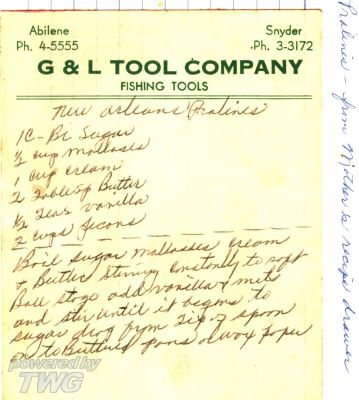 Abilene
Ph. 4-5555
Snyder
Ph. 3-3172
G & L TOOL COMPANY
FISHING TOOLS
New Orleans Pralines
1C - Br Sugar
½ cup mollases
1 cup cream
2 Tablesp Butter
½ teas vanilla
2 cups pecans
Boil sugar mollasses cream
& Butter stirring constantly to soft
Ball stage add vanilla & nuts
and stir until it begins to
sugar drop from tip of spoon
on to Buttered pans or wax paper
Pralines - from Mother's recipe drawer
powered by
TWG